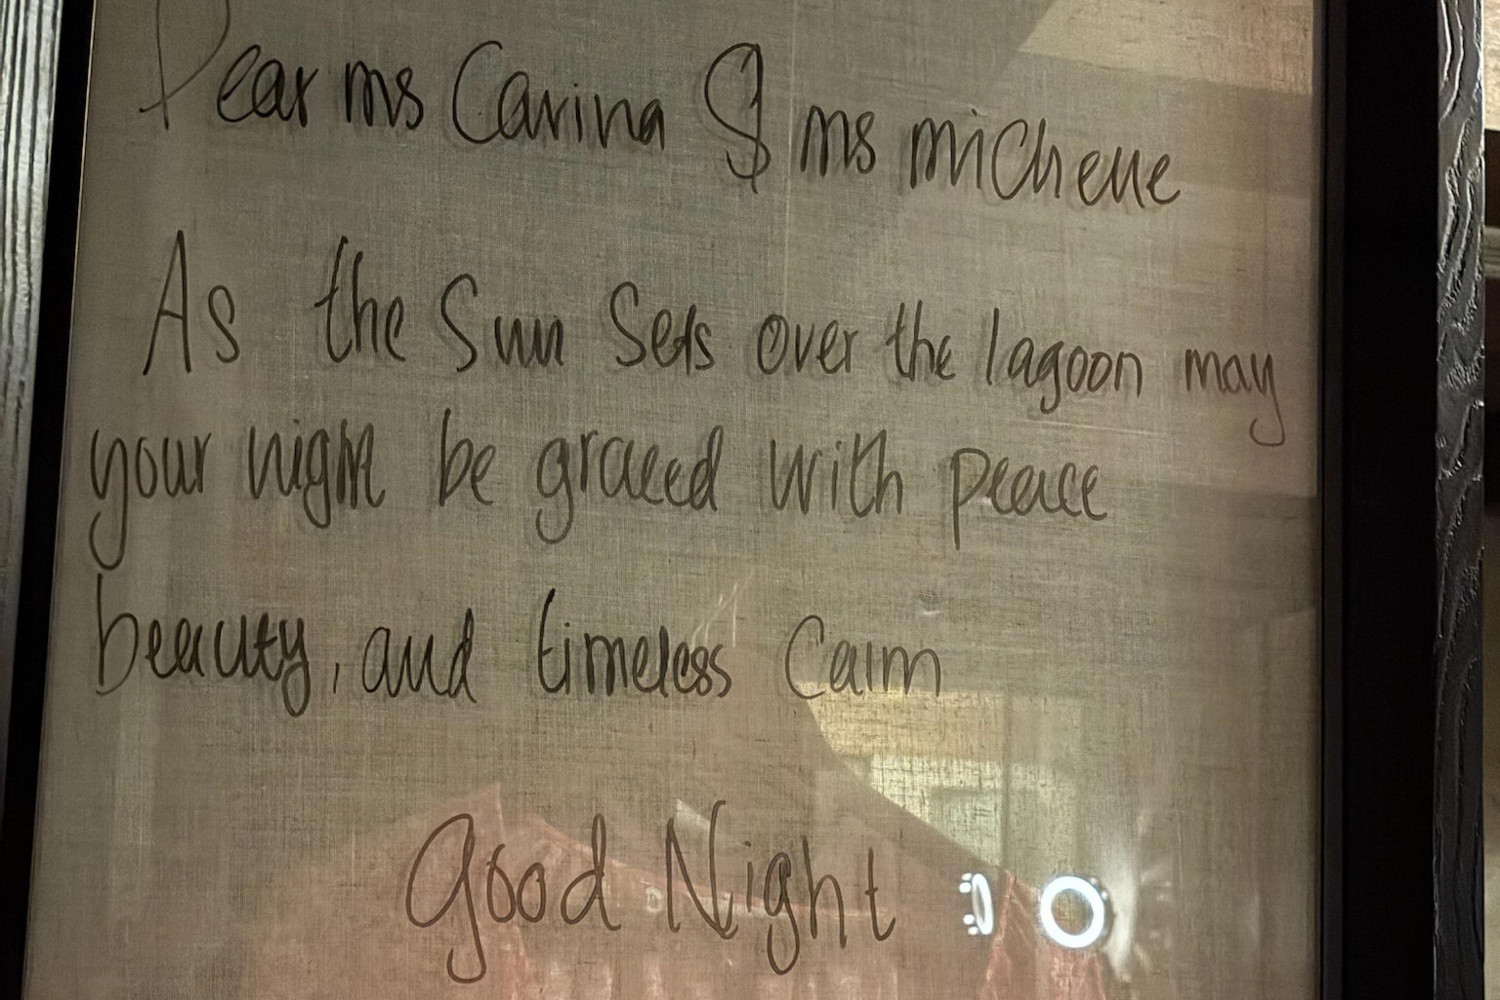 Dear ms Carina & ms michelle
As the Sun Sets over the lagoon may
your night be graced with peace
beauty, and timeless Calm
Good Night